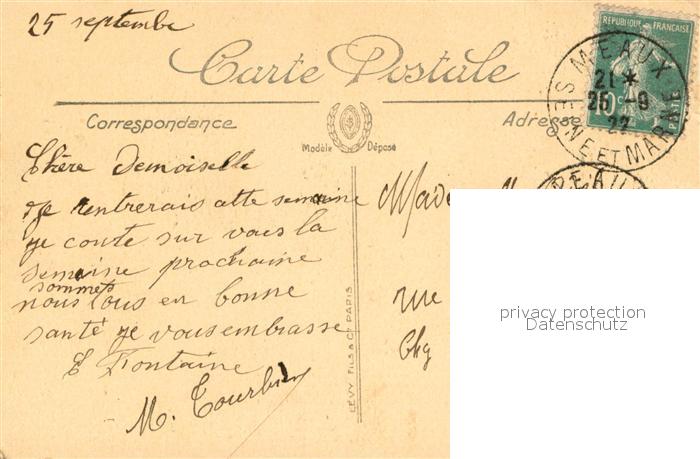 25 septembre
Carte Postale
REPUBLIQUE FRANÇAISE
10 c
POSTE
MEAUX
21 *
25 -9
22
SEINE ET MARNE
MEAUX
Correspondance
Adresse
Modèle Déposé
Chère Demoiselle
Je rentrerais cette semaine
je conte sur vous la
semaine prochaine
sommes
nous tous en bonne
santé je vous embrasse
E Fontaine
M. Tourbin
LÉVY FILS & Cie PARIS
rue
privacy protection
Datenschutz